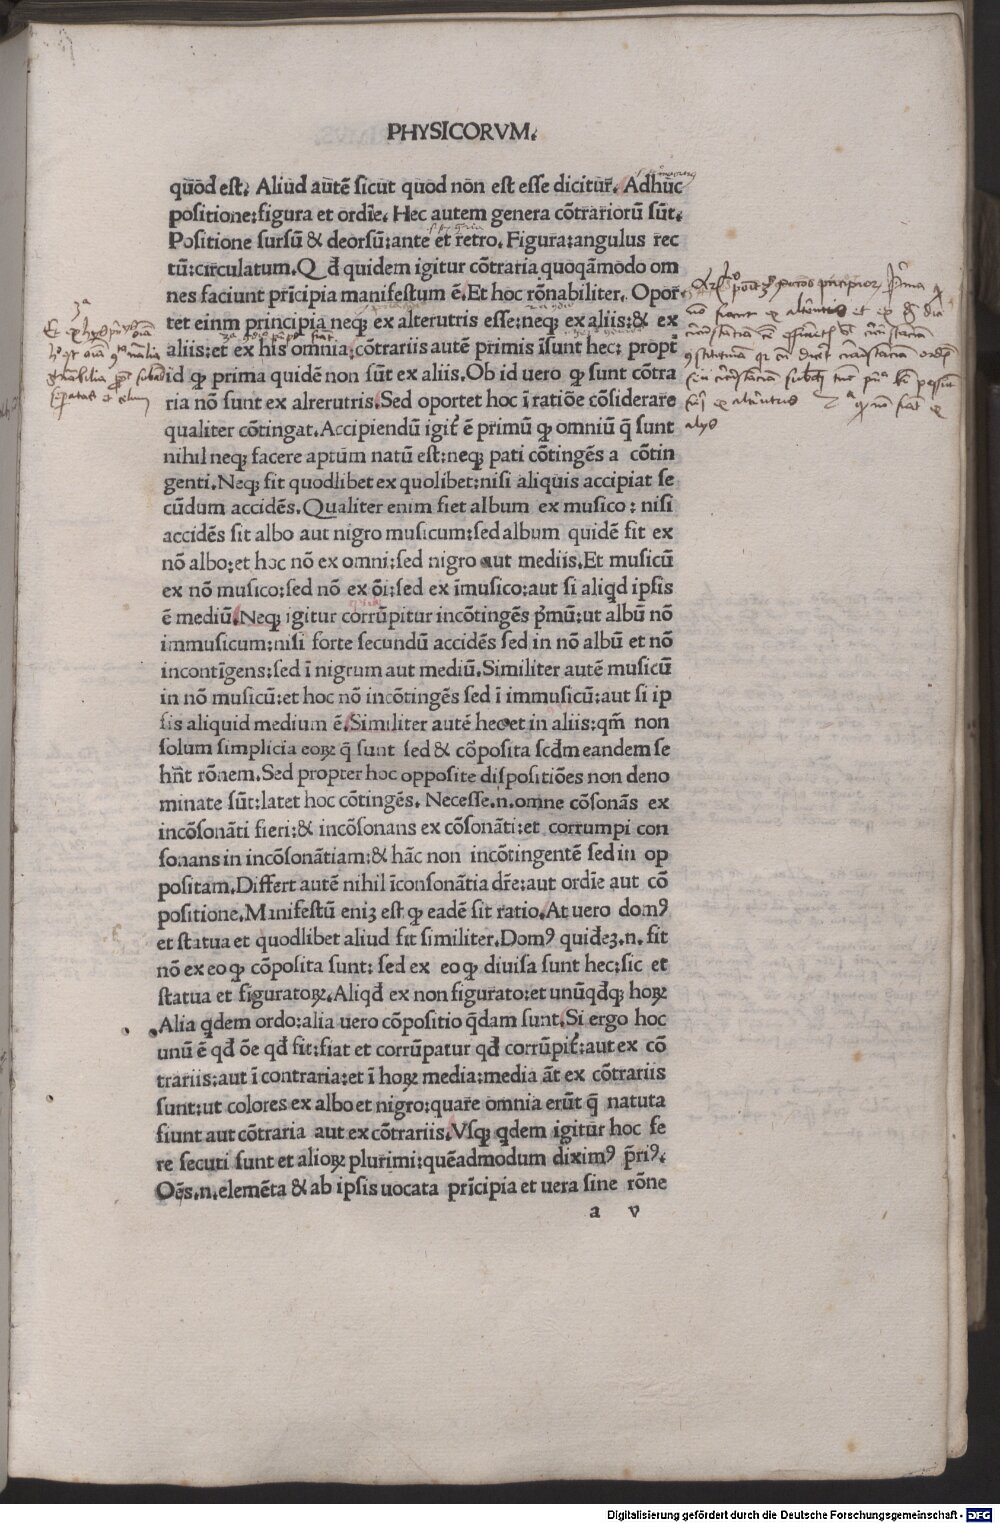 PHYSICORVM.
quod est. Aliud autē sicut quod non est esse dicitur̄. Adhuc
positione:figura et ordīe. Hec autem genera cōtrariorū sūt.
Positione sursū & deorsū:ante et retro. Figura:angulus rec
tū:circulatum. Qđ quidem igitur cōtraria quoqāmodo om
nes faciunt prīcipia manifestum ē. Et hoc rōnabiliter. Opor
tet einm principia neqꝫ ex alterutris esse:neqꝫ ex aliis:& ex
aliis:et ex his omnia:cōtrariis autē primis īsunt hec: propt̄
id ꝙ prima quidē non sūt ex aliis. Ob id uero ꝙ sunt cōtra
ria nō sunt ex alrerutris. Sed oportet hoc ī ratiōe cōsiderare
qualiter cōtingat. Accipiendū igit̄ ē primū ꝙ omniū q̄ sunt
nihil neqꝫ facere aptum natū est:neqꝫ pati cōtingēs a cōtin
genti. Neqꝫ fit quodlibet ex quolibet:nisi aliquis accipiat se
cūdum accidēs. Qualiter enim fiet album ex musico: nisi
accidēs sit albo aut nigro musicum:sed album quidē fit ex
nō albo:et hoc nō ex omni:sed nigro aut mediis. Et musicū
ex nō musico:sed nō ex ōi:sed ex īmusico:aut si aliqd ipsis
ē mediū. Neqꝫ igitur corrūpitur incōtingēs p̄mū:ut albū nō
immusicum:nisi forte secundū accidēs sed in nō albū et nō
incontīgens:sed ī nigrum aut mediū. Similiter autē musicū
in nō musicū:et hoc nō incōtingēs sed ī immusicū:aut si ip
sis aliquid medium ē. Similiter autē hec et in aliis:qm̄ non
solum simplicia eoꝝ q̄ sunt sed & cōposita scđm eandem se
hn̄t rōnem. Sed propter hoc opposite dispositiōes non deno
minate sūt:latet hoc cōtingēs. Necesse.n.omne cōsonās ex
incōsonāti fieri:& incōsonans ex cōsonāti:et corrumpi con
sonans in incōsonātiam:& hāc non incōtingentē sed in op
positam. Differt autē nihil īconsonātia dr̄e:aut ordīe aut cō
positione. Manifestū eniꝫ est ꝙ eadē sit ratio. At uero domꝰ
et statua et quodlibet aliud fit similiter. Domꝰ quideꝫ.n. fit
nō ex eo ꝙ cōposita sunt: sed ex eo ꝙ diuisa sunt hec:sic et
statua et figuratoꝝ. Aliqđ ex non figurato:et unūqđqꝫ hoꝝ
Alia qdem ordo:alia uero cōpositio q̄dam sunt. Si ergo hoc
unū ē qđ ōe qđ fit:fiat et corrūpatur qđ corrūpit̄:aut ex cō
trariis:aut ī contraria:et ī hoꝝ media:media āt ex cōtrariis
sunt:ut colores ex albo et nigro:quare omnia erūt q̄ natuta
fiunt aut cōtraria aut ex cōtrariis. Vsqꝫ qdem igitur hoc fe
re secuti sunt et alioꝝ plurimi:quēadmodum diximꝰ p̄riꝰ.
Oēs.n.elemēta & ab ipsis uocata prīcipia et uera sine rōne
a v
Digitalisierung gefördert durch die Deutsche Forschungsgemeinschaft - DFG